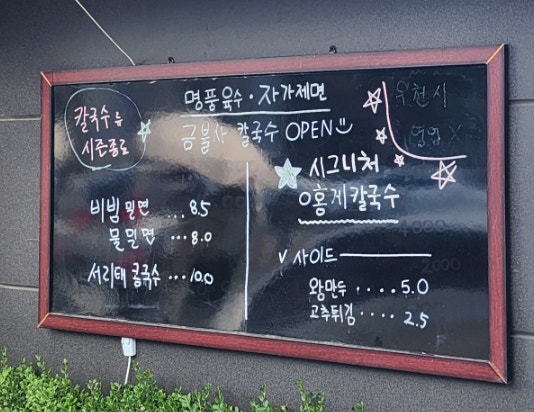 명풍육수 · 자가제면
금불사 칼국수 OPEN
칼국수는
시즌종료
우천시
영업 X
비빔밀면 ... 8.5
물밀면 ... 8.0
서리태 콩국수 ... 10.0
시그니처
홍게칼국수
v 사이드
왕만두 ..... 5.0
고추튀김 .... 2.5